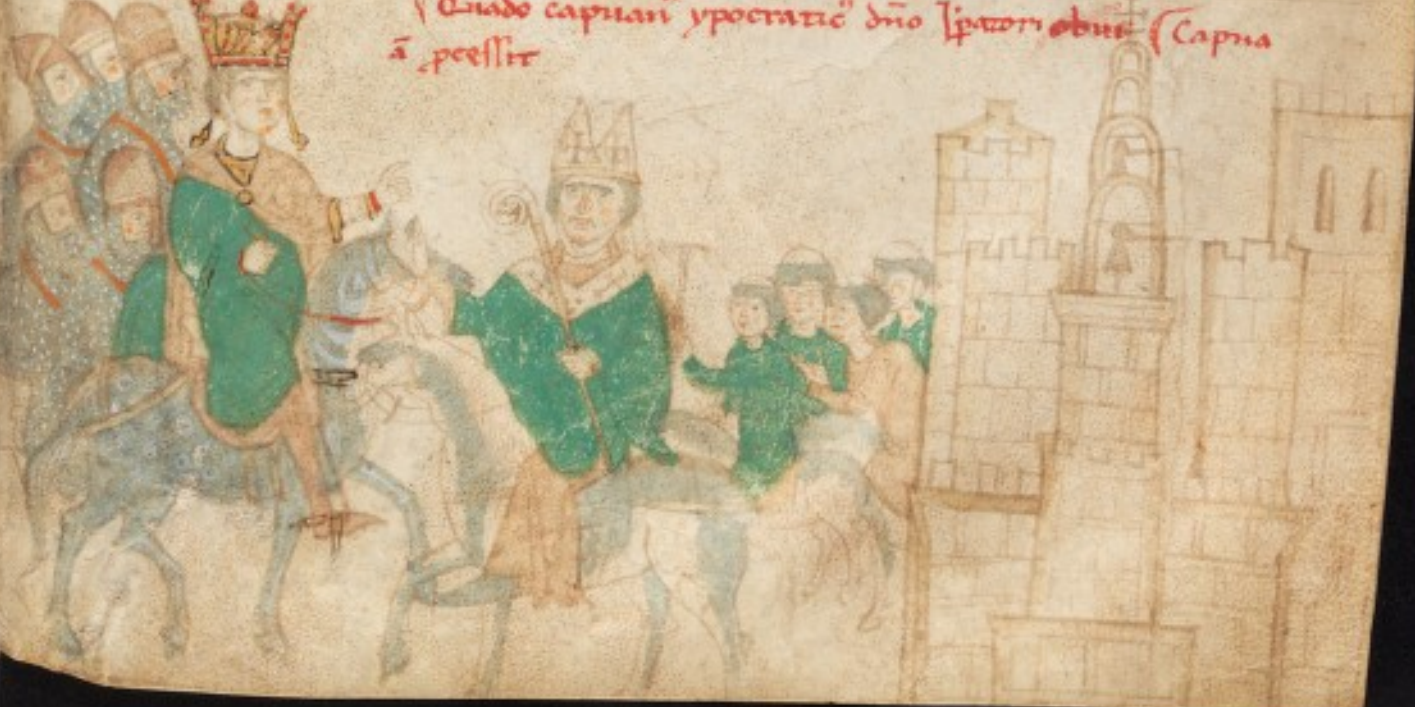 Quādo capuan᷒ ypocratic᷒ dn̄o Īpatori obuiā
Capua
p̄cessit